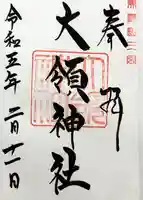 奉拝
大領神社
令和五年 二月十一日